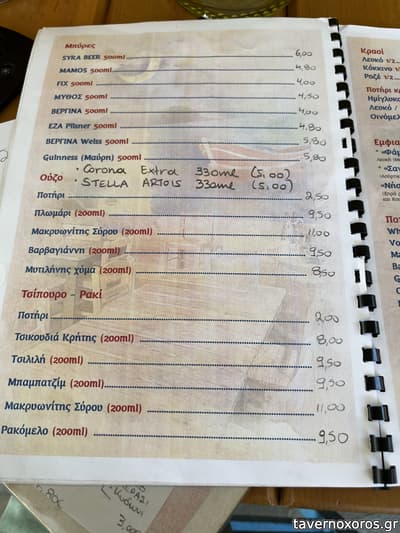 Μπύρες
SYRA BEER 500ml 6,00
MAMOS 500ml 4,80
FIX 500ml 4,00
ΜΥΘΟΣ 500ml 4,50
ΒΕΡΓΙΝΑ 500ml 4,00
ΕΖΑ Pilsner 500ml 4,80
ΒΕΡΓΙΝΑ Weiss 500ml 5,80
Guinness (Μαύρη) 500ml 5,80
• Corona Extra 330ml (5,00)
• STELLA ARTOIS 330ml (5,00)
Ούζο
Ποτήρι 2,50
Πλωμάρι (200ml) 9,50
Μακρυωνίτης Σύρου (200ml) 11,00
Βαρβαγιάννη (200ml) 9,50
Μυτιλήνης χύμα (200ml) 8,50
Τσίπουρο - Ρακί
Ποτήρι 2,00
Τσικουδιά Κρήτης (200ml) 8,00
Τσιλιλή (200ml) 9,50
Μπαμπατζίμ (200ml) 9,50
Μακρυωνίτης Σύρου (200ml) 11,00
Ρακόμελο (200ml) 9,50
Κρασί
Λευκό 1/2
Κόκκινο 1/2
Ροζέ 1/2
Ποτήρι
Ημίγλυκο
Λευκό /
tavernoxoros.gr